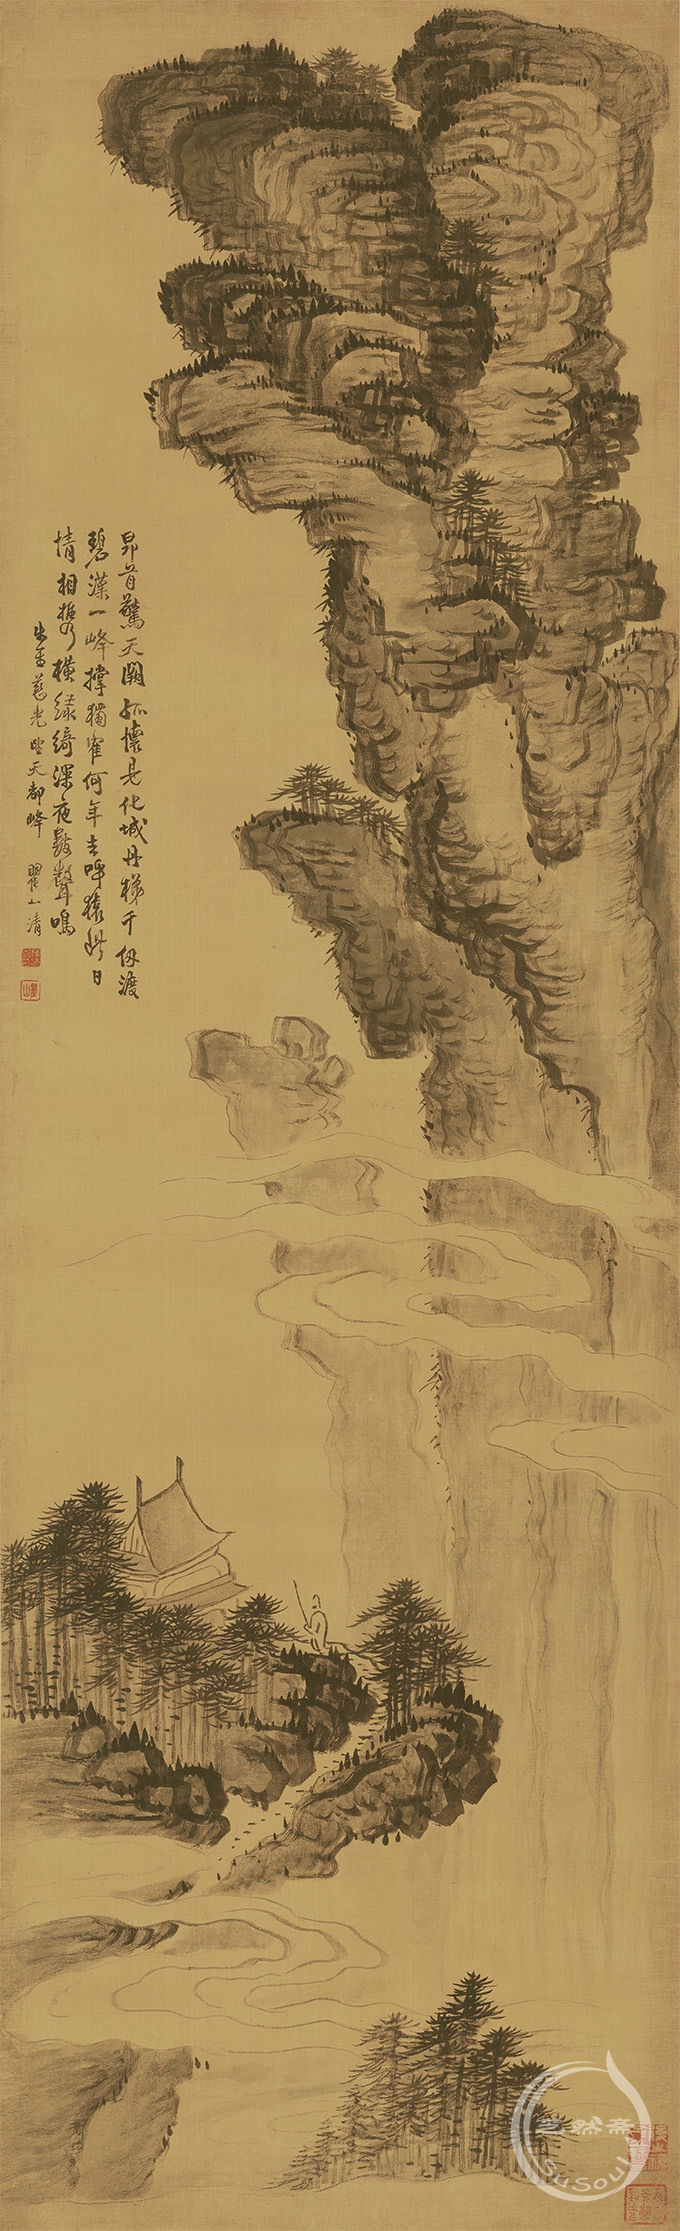 昂首驚天闕孤懷見化城丹梯千仞渡
碧漢一峰撐獨寉何年去呼猿此日
情相攜橫綠綺深夜數聲鳴
慈光望天都峰 瞿山清
瞿山
然斋
SuSoul